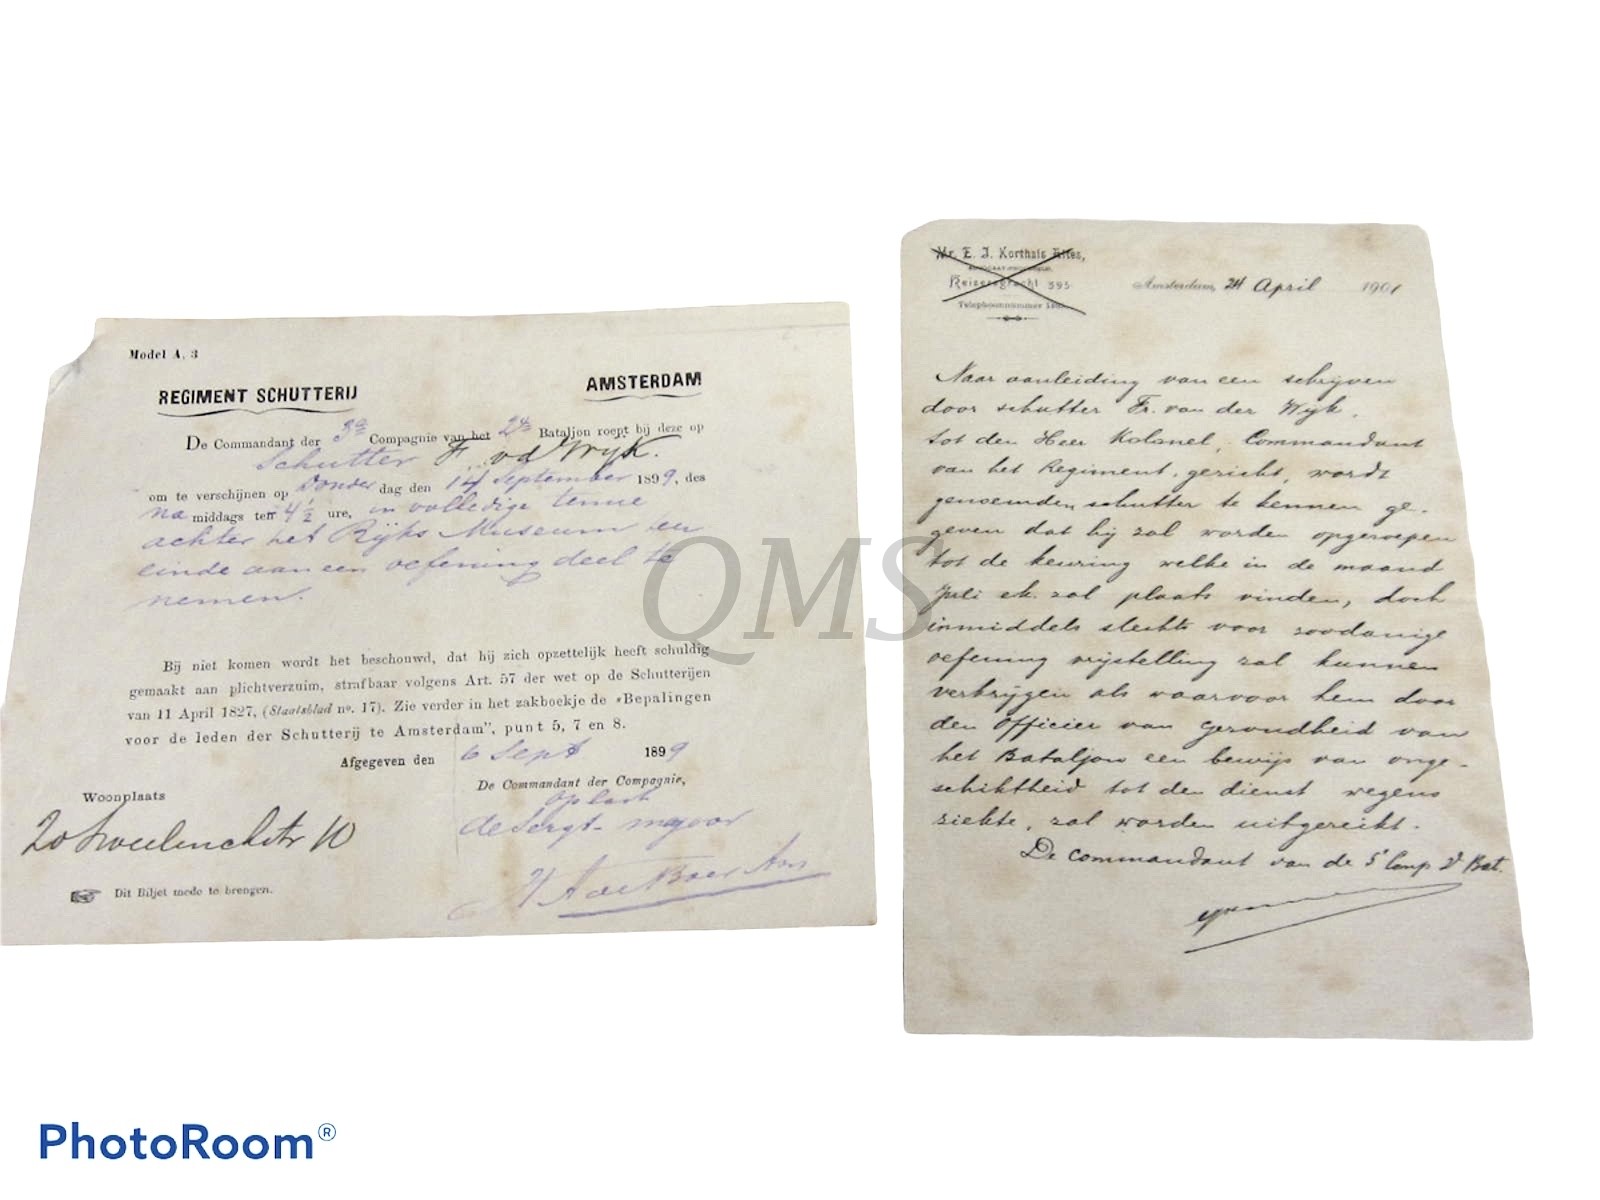 Model A. 3
REGIMENT SCHUTTERIJ AMSTERDAM
De Commandant der 3e Compagnie van het 2de Bataljon roept bij deze op
Schutter F. v d Wyk.
om te verschijnen op Donder dag den 14 September 1899, des
na middags ten 4½ ure, in volledige tenue
achter het Rijks Museum ten
einde aan een oefening deel te
nemen.
Bij niet komen wordt het beschouwd, dat hij zich opzettelijk heeft schuldig
gemaakt aan plichtverzuim, strafbaar volgens Art. 57 der wet op de Schutterijen
van 11 April 1827, (Staatsblad no. 17). Zie verder in het zakboekje de »Bepalingen
voor de leden der Schutterij te Amsterdam", punt 5, 7 en 8.
Afgegeven den 6 Sept 1899
De Commandant der Compagnie,
op last
de Sergt- majoor
Woonplaats
2o Sweelinckstr 10
Dit Biljet mede te brengen.
Mr. E. J. Korthals Altes,
ADVOCAAT-PROCUREUR,
Keizersgracht 593
Telephoonnummer
Amsterdam, 24 April 1901
Naar aanleiding van een schrijven
door schutter Fr. van der Wijk.
tot den Heer Kolonel, Commandant
van het Regiment, gericht, wordt
genoemden schutter te kennen ge-
geven dat hij zal worden opgeroepen
tot de keuring welke in de maand
Juli ek. zal plaats vinden, doch
inmiddels slechts voor zoodanige
oefening vrijstelling zal kunnen
verkrijgen als waarvoor hem door
den Officier van Gezondheid van
het Bataljon een bewijs van onge-
schiktheid tot den dienst wegens
ziekte, zal worden uitgereikt.
De Commandant van de 3e Comp 2e Bat.
QMS
PhotoRoom®